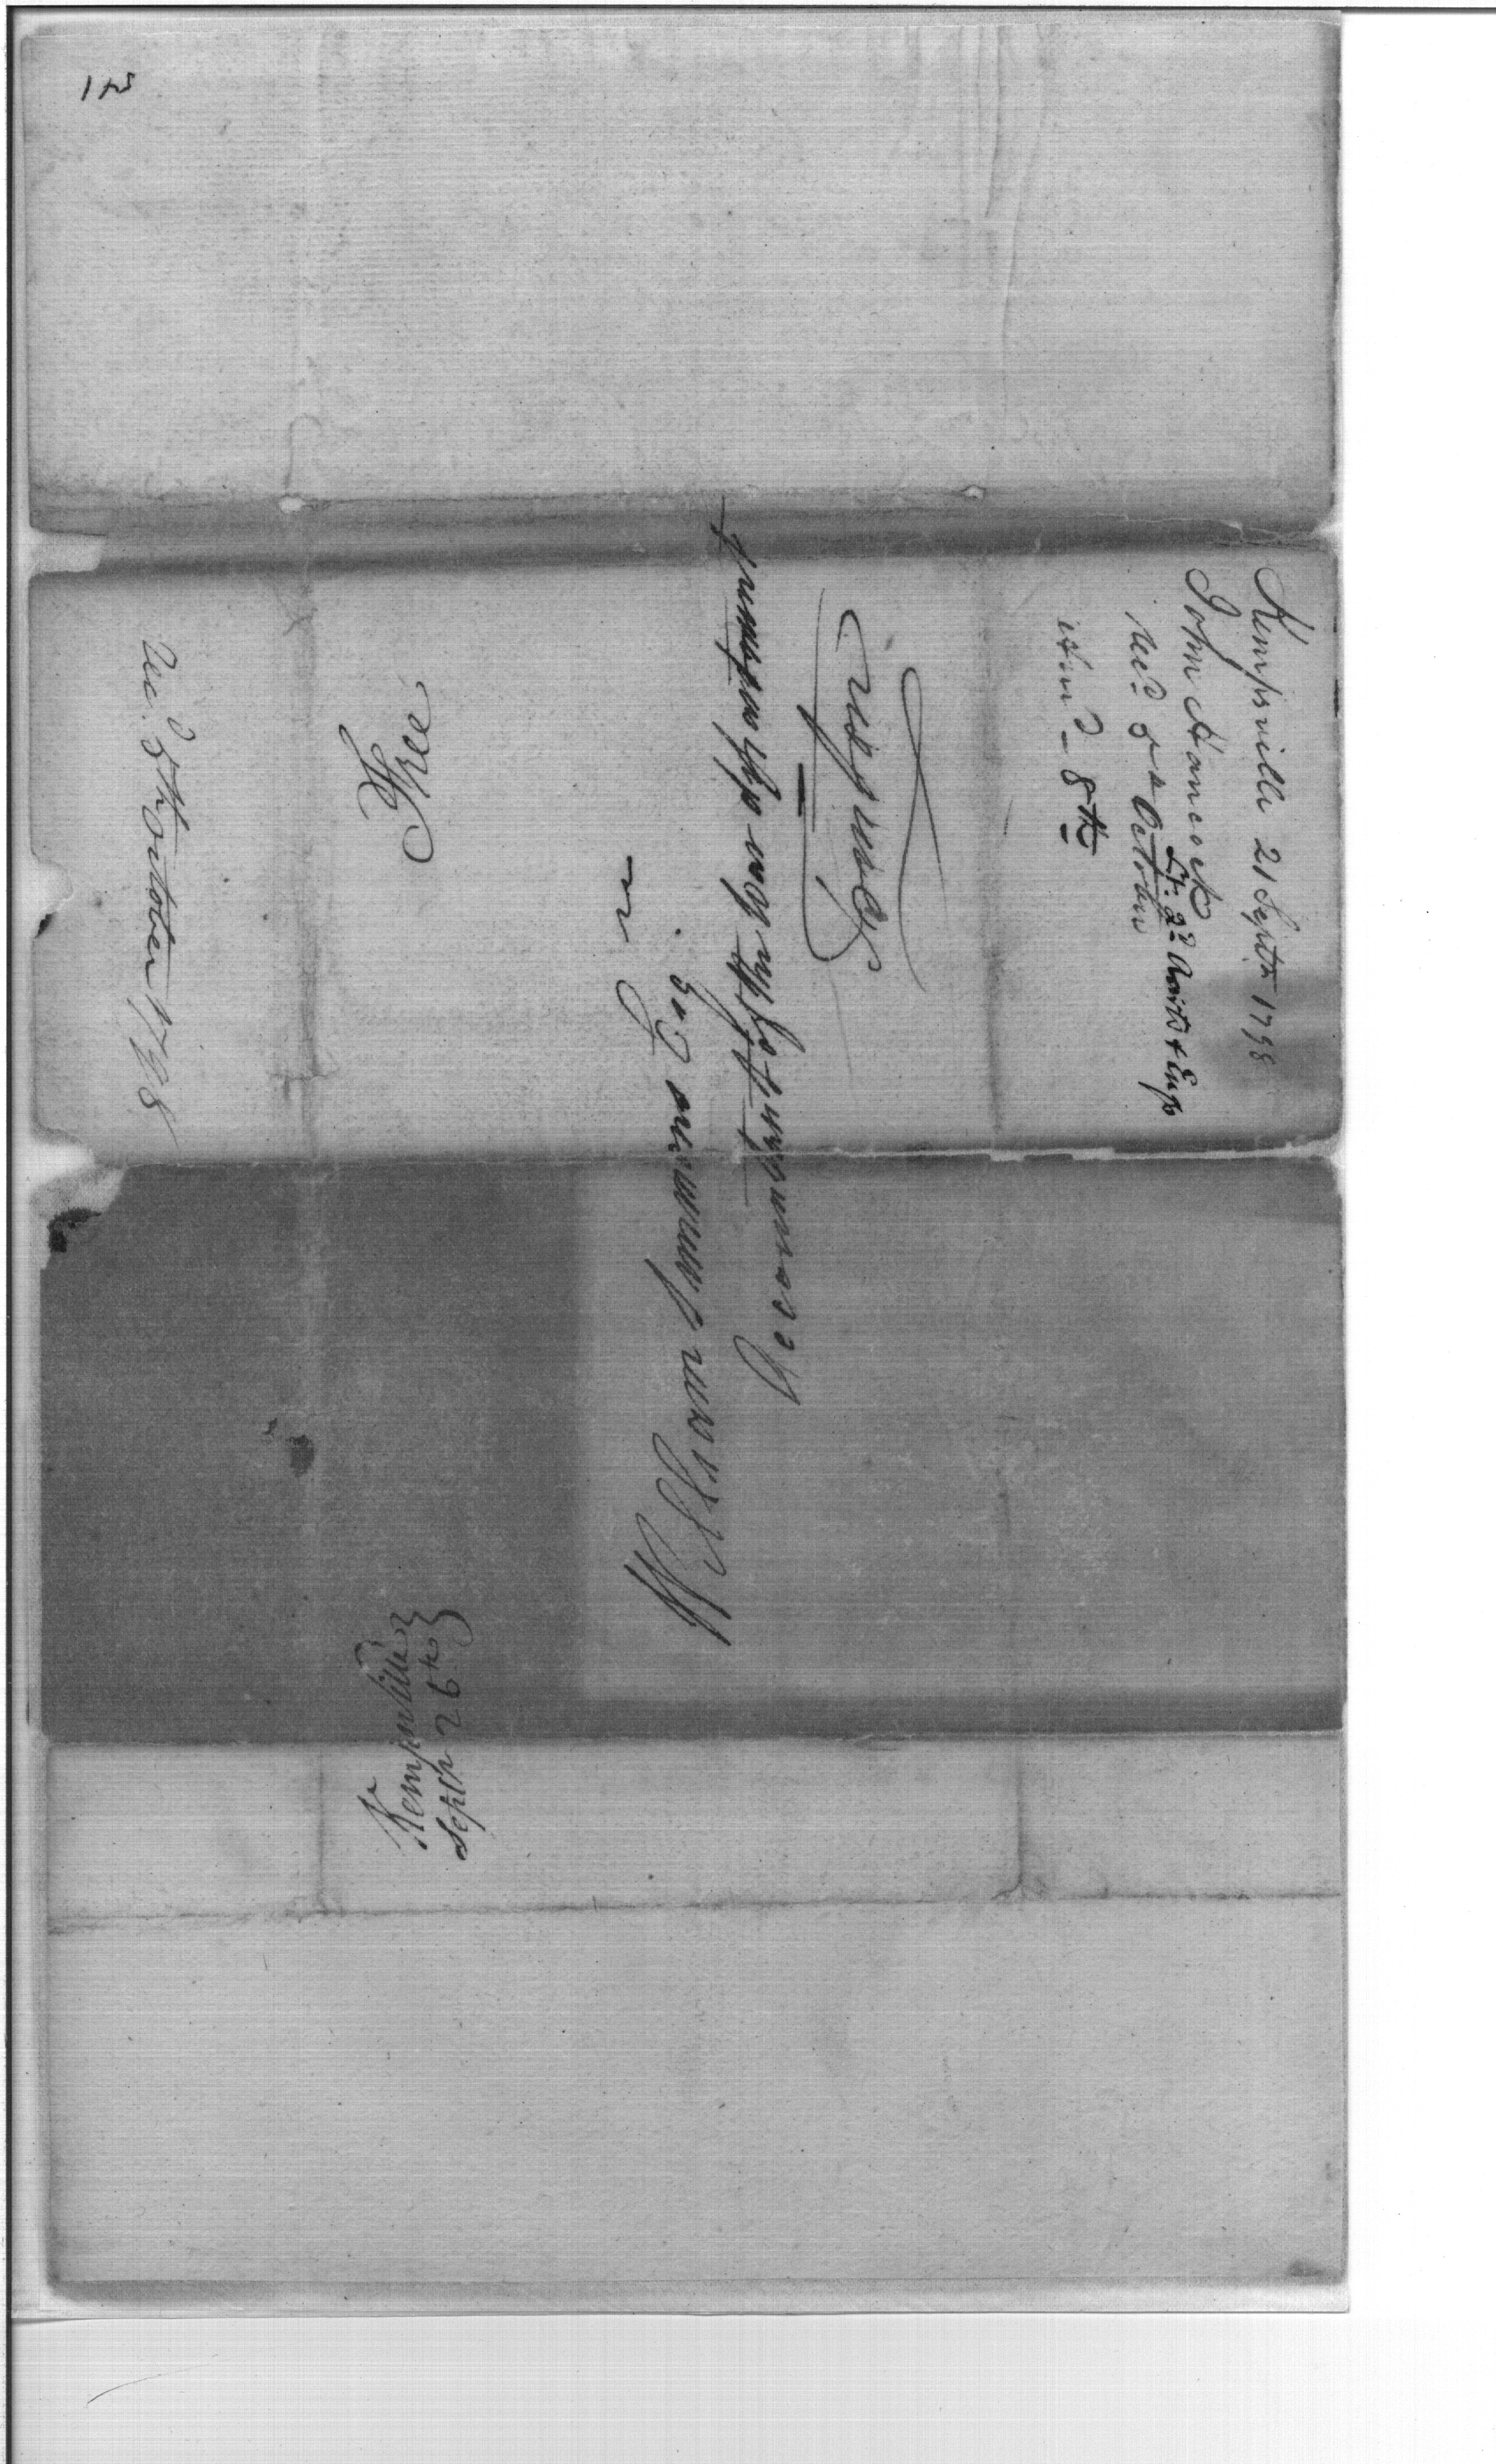 Kempsville 21 Septr 1798
John Hancock
Lt. 2d Arts & Engs
Recd 5th October
Ansd - 8th
Kempsville
Septr 26th
Free
William Simmons Esq
Accountant of the War Department
Recd 5th October 1798